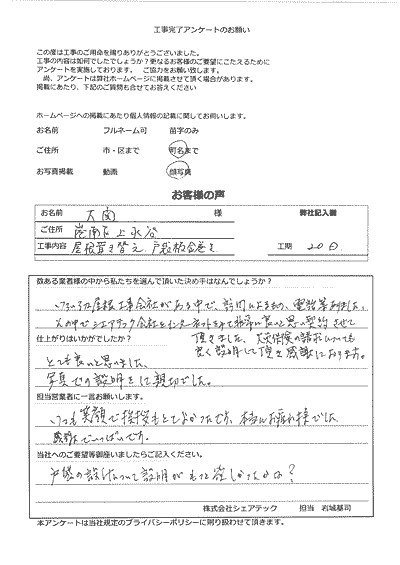 工事完了アンケートのお願い
この度は工事のご用命を賜りありがとうございました。
工事の内容は如何でしたでしょうか？更なるお客様のご要望にこたえるために
アンケートを実施しております。 ご協力をお願い致します。
尚、アンケートは弊社ホームページに掲載させて頂く場合があります。
掲載にあたり、下記のご質問も合せてお答えください
ホームページへの掲載にあたり個人情報の記載に関してお伺いします。
お名前 フルネーム可 苗字のみ
ご住所 市・区まで 町名まで
お写真掲載 動画 顔写真
お客様の声
お名前 大園 様 弊社記入欄
ご住所 港南区上永谷
工事内容 屋根葺き替え 戸袋板金巻き 工期 20日
数ある業者様の中から私たちを選んで頂いた決め手はなんでしょうか？
いろいろ屋根工事会社がある中で、訪問によるもの、電話等ありました。
その中でシェアテック会社をインターネットをみて非常に良いと思い契約させて
頂きました、火災保険の請求についても
良く説明して頂き感謝しております。
仕上がりはいかがでしたか？
とても良いと思いました。
写真での説明をして親切でした。
担当営業者に一言お願いします。
いつも笑顔で挨拶もとてもよかったです。本当にお疲れ様でした
感謝でいっぱいです。
当社へのご要望等御座いましたらご記入ください。
戸袋の設計について説明がもっと欲しかったかな？
株式会社シェアテック 担当 岩城基司
本アンケートは当社規定のプライバシーポリシーに則り扱わせて頂きます。